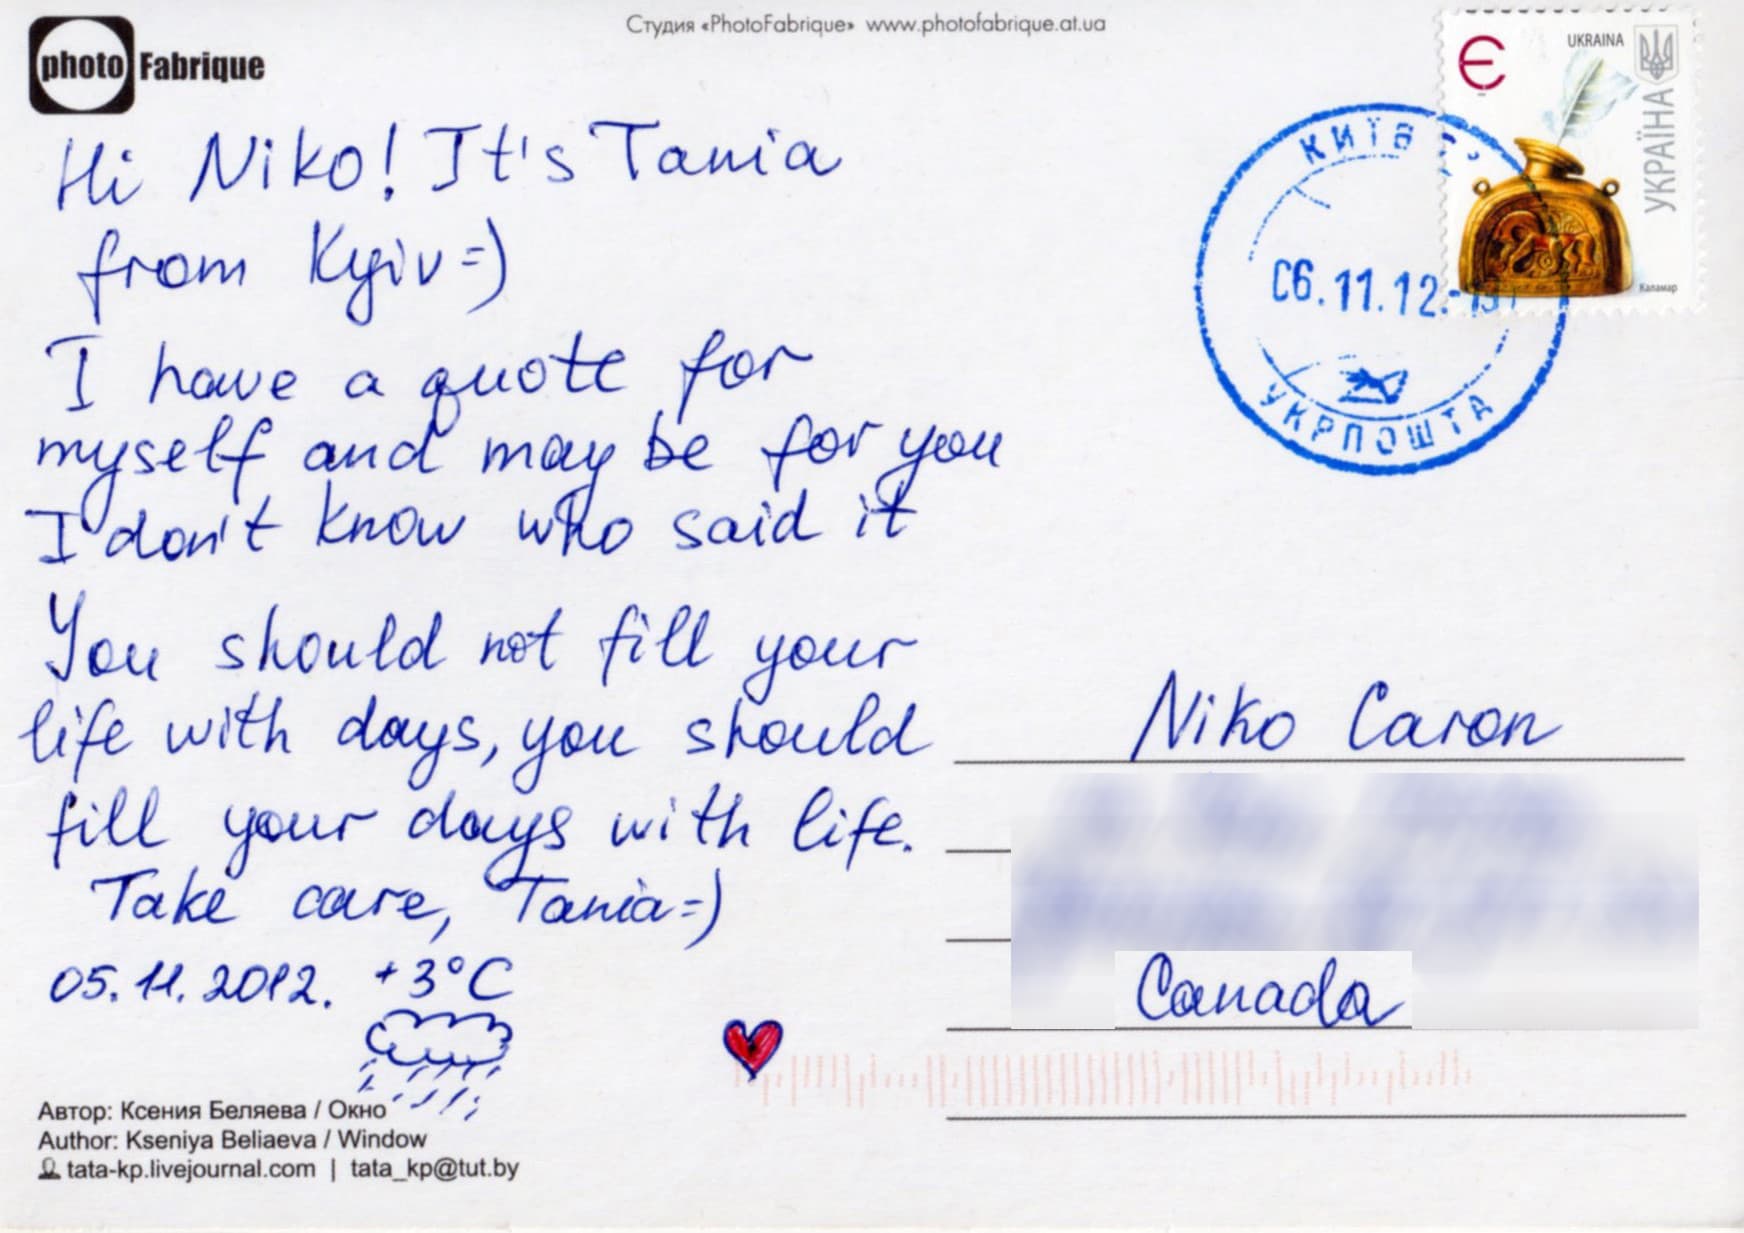 photo Fabrique
Студия «PhotoFabrique» www.photofabrique.at.ua
Hi Niko! It's Tania
from Kyiv =)
I have a quote for
myself and may be for you
I don't know who said it
You should not fill your
life with days, you should
fill your days with life.
Take care, Tania =)
05.11.2012. +3°C
Автор: Ксения Беляева / Окно
Author: Kseniya Beliaeva / Window
tata-kp.livejournal.com | tata_kp@tut.by
є
UKRAINA
УКРАЇНА
Каламар
КИЇВ
06.11.12.
УКРПОШТА
Niko Caron
Canada